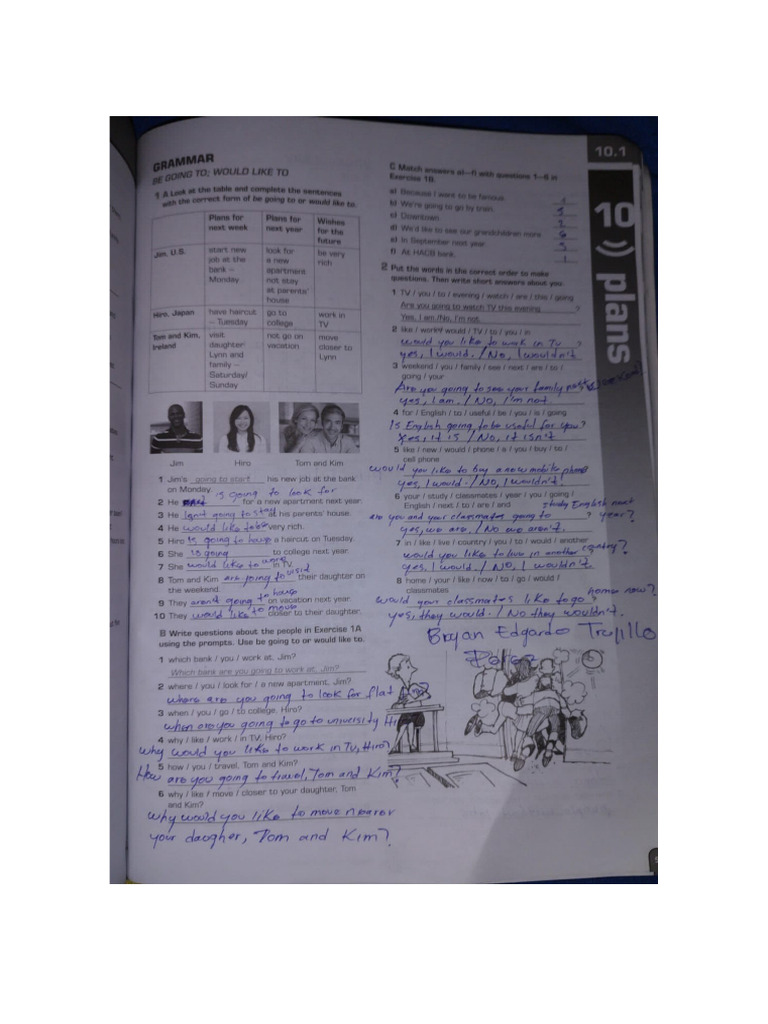 GRAMMAR
BE GOING TO; WOULD LIKE TO
1 A Look at the table and complete the sentences
with the correct form of be going to or would like to.
Plans for next week
Plans for next year
Wishes for the future
Jim, U.S.
start new job at the bank – Monday
look for a new apartment
not stay at parents' house
be very rich
Hiro, Japan
have haircut – Tuesday
go to college
work in TV
Tom and Kim, Ireland
visit daughter Lynn and family – Saturday/ Sunday
not go on vacation
move closer to Lynn
Jim
Hiro
Tom and Kim
1 Jim's going to start his new job at the bank
on Monday.
2 He is going to look for for a new apartment next year.
3 He isn't going to stay at his parents' house.
4 He would like to be very rich.
5 Hiro is going to have a haircut on Tuesday.
6 She is going to college next year.
7 She would like to work in TV.
8 Tom and Kim are going to visit their daughter on
the weekend.
9 They aren't going to on vacation next year.
10 They would like to move closer to their daughter.
B Write questions about the people in Exercise 1A
using the prompts. Use be going to or would like to.
1 which bank / you / work at, Jim?
Which bank are you going to work at, Jim?
2 where / you / look for / a new apartment, Jim?
where are you going to look for flat
3 when / you / go / to college, Hiro?
when are you going to go to university
4 why / like / work / in TV, Hiro?
Why would you like to work in TV, Hiro?
5 how / you / travel, Tom and Kim?
How are you going to travel, Tom and Kim?
6 why / like / move / closer to your daughter, Tom
and Kim?
why would you like to move nearer
your daugher, Tom and Kim?
C Match answers a)–f) with questions 1–6 in
Exercise 1B.
a) Because I want to be famous.
b) We're going to go by train. 5
c) Downtown 2
d) We'd like to see our grandchildren more. 6
e) In September next year. 3
f) At HACB bank. 1
2 Put the words in the correct order to make
questions. Then write short answers about you.
1 TV / you / to / evening / watch / are / this / going
Are you going to watch TV this evening ?
Yes, I am./No, I'm not.
2 like / work / would / TV / to / you / in
would you like to work in Tv ?
yes, I would. / No, I wouldn't
3 weekend / you / family / see / next / are / to /
going / your
Are you going to see your family
yes, I am. / No, I'm not.
4 for / English / to / useful / be / you / is / going
Is English going to be useful for you?
Yes, it is / No, it isn't
5 like / new / would / phone / a / you / buy / to /
cell phone
would you like to buy a new mobile phone
yes, I would. / No, I wouldn't
6 your / study / classmates / year / you / going /
English / next / to / are / and
are you and your classmates going to study English next year?
yes, we are. / No we aren't.
7 in / like / live / country / you / to / would / another
would you like to live in another country?
yes, I would. / No, I wouldn't.
8 home / your / like / now / to / go / would /
classmates
would your classmates like to go home now?
yes, they would. / No they wouldn't.
Bryan Edgardo Trujillo
10.1
10
plans